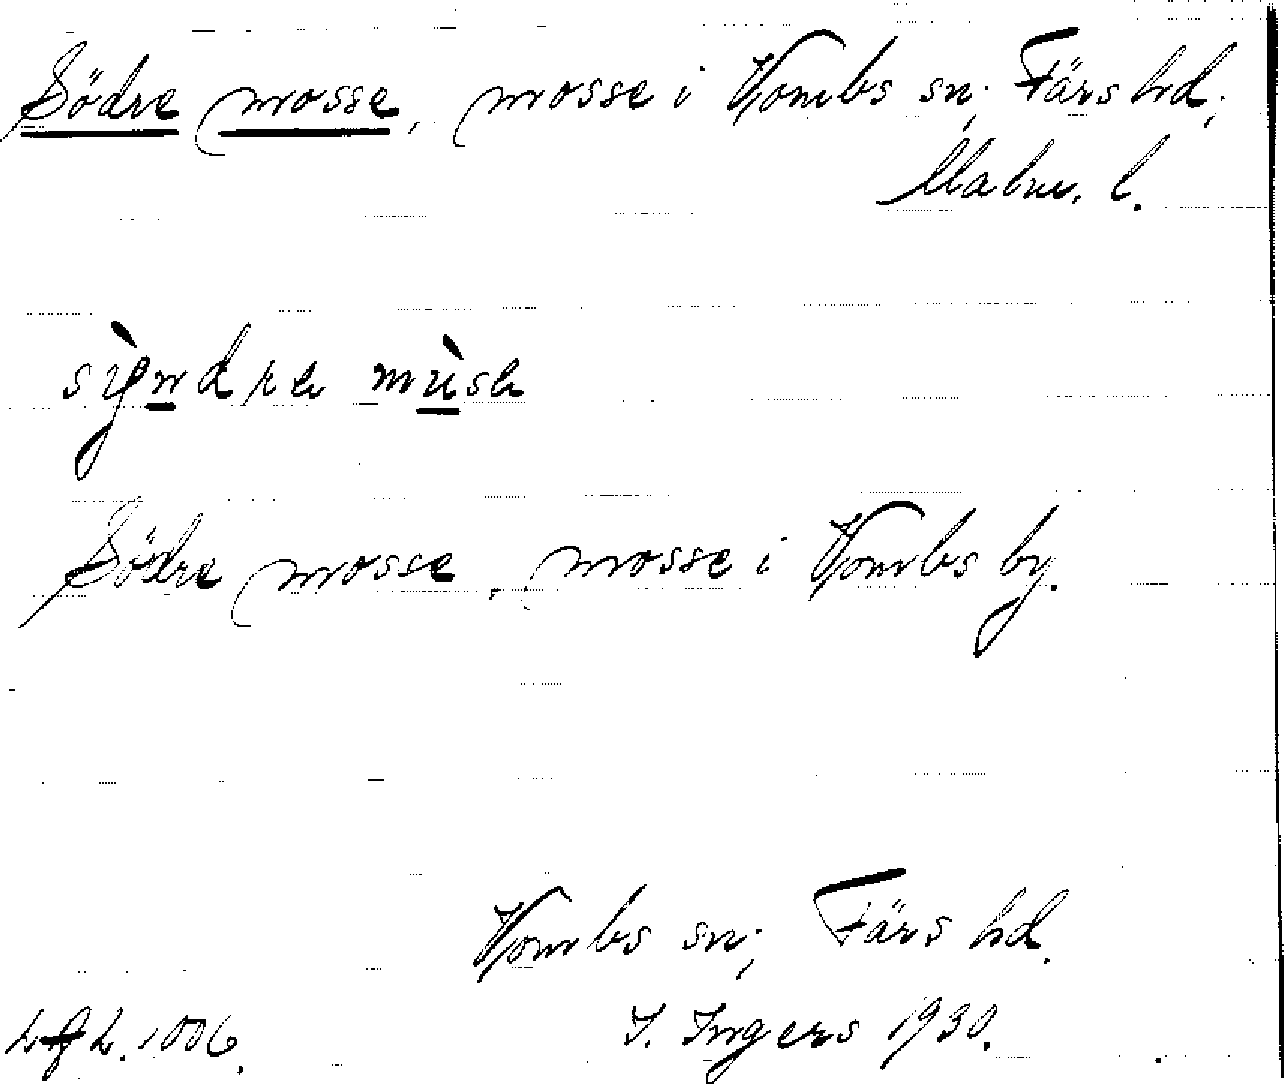 Södre mosse, mosse i Vombs sn; Färs hd;
Malm. l.
sỳndrə mùsə
Södre mosse, mosse i Vombs by.
Vombs sn; Färs hd.
1006. I. Ingers 1930.